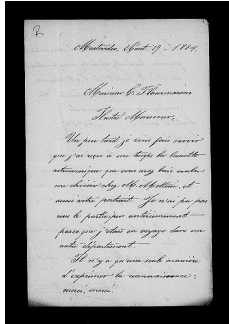 Montevideo, Août 19 - 1884.
Monsieur C. Flammarion
Maître Monsieur,
Un peu tard je vous fais savoir
que j'ai reçu à son temps la lunette
astronomique que vous avez bien voulu
me choisir chez M. Molteni, et
aussi votre portrait. Je n'ai pu pas
vous le participer antérieurement
parce que j'étais en voyage dans un
autre département.
Il n'y a qu'une seule manière
d'exprimer la connaissance:
merci, merci!